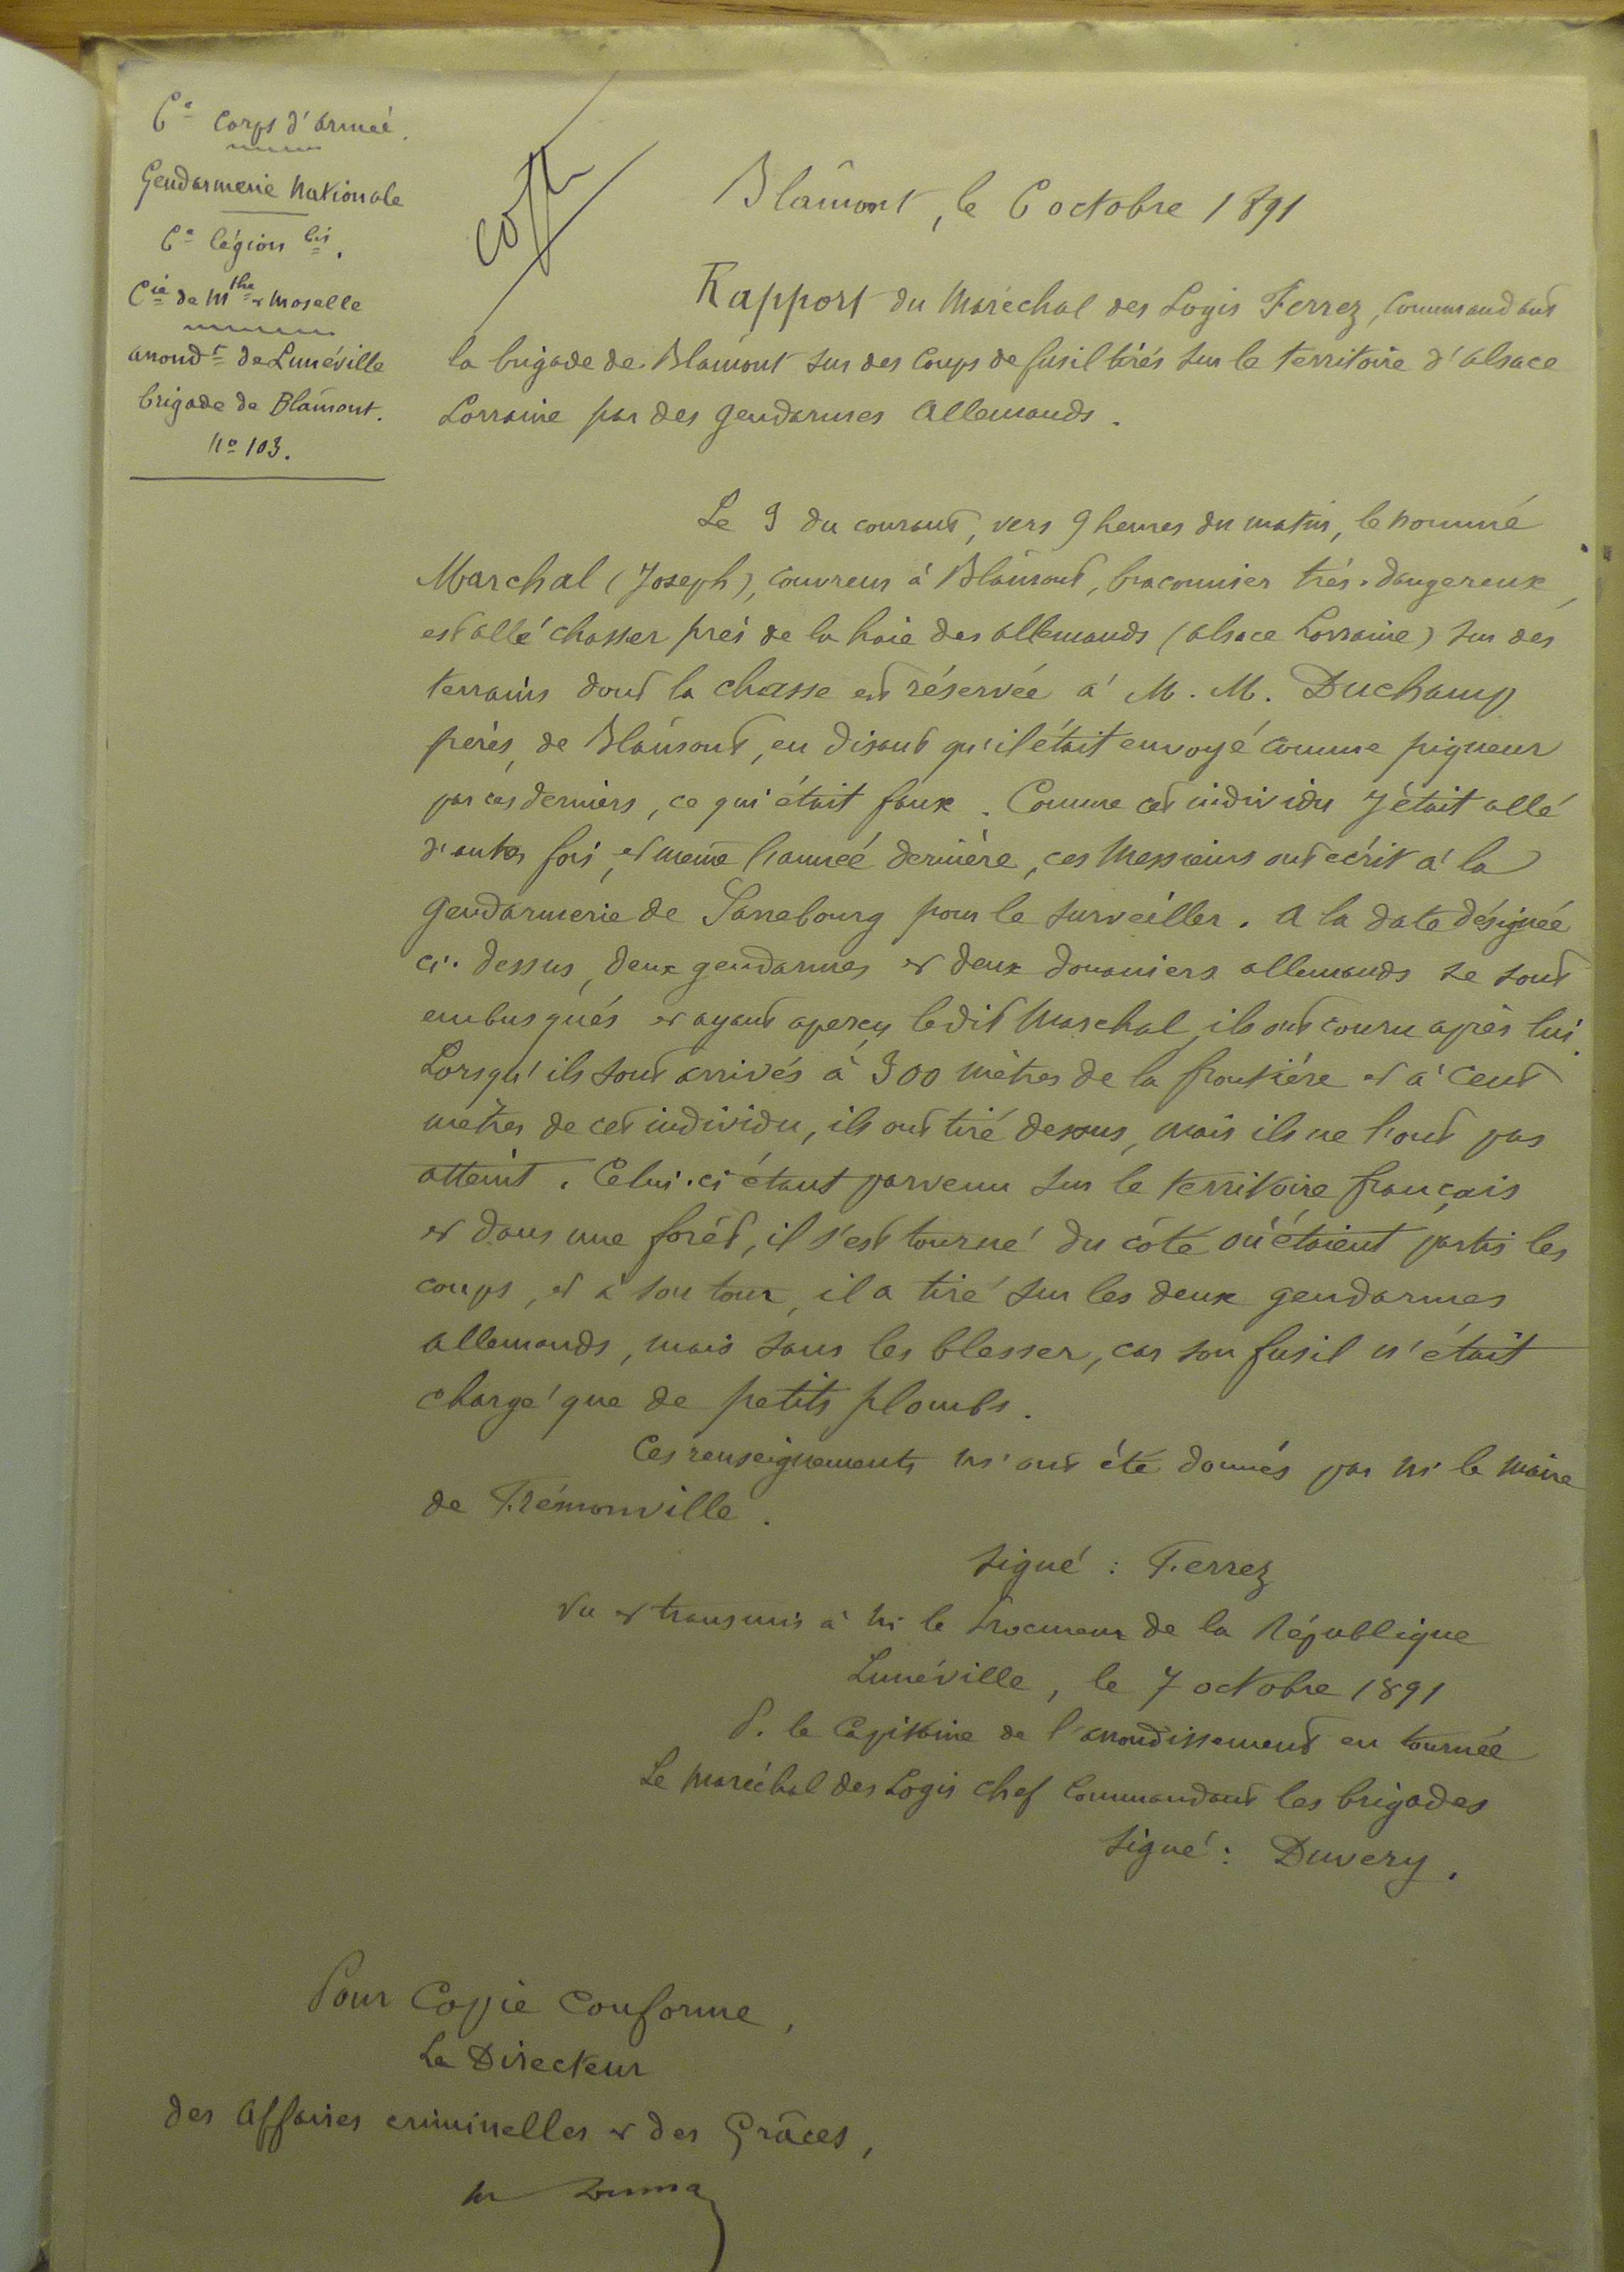 6e Corps d'armée.
Gendarmerie Nationale
6e légion bis.
Cie de Mthe et Moselle
arrondt de Lunéville
brigade de Blâmont.
No 103.
Blâmont, le 6 octobre 1891
Rapport du Maréchal des Logis Ferrez, Commandant
la brigade de Blâmont sur des coups de fusil tirés sur le territoire d'alsace
Lorraine par des gendarmes Allemands.
Le 3 du courant, vers 9 heures du matin, le nommé
Marchal (Joseph), couvreur à Blâmont, braconnier très-dangereux,
est allé chasser près de la haie des allemands (alsace Lorraine) sur des
terrains dont la chasse est réservée à M. M. Duchamp
frères, de Blâmont, en disant qu'il était envoyé comme piqueur
par ces derniers, ce qui était faux. Comme cet individu y était allé
d'autres fois, et même l'année dernière, ces Messieurs ont écrit à la
Gendarmerie de Sarrebourg pour le surveiller. A la date désignée
ci-dessus, deux gendarmes et deux douaniers allemands se sont
embusqués et ayant aperçu ledit Marchal, ils ont couru après lui.
Lorsqu'ils sont arrivés à 300 mètres de la frontière et à cent
mètres de cet individu, ils ont tiré dessus, mais ils ne l'ont pas
atteint. Celui-ci étant parvenu sur le territoire français
et dans une forêt, il s'est tourné du côté où étaient partis les
coups, et à son tour, il a tiré sur les deux gendarmes
allemands, mais sans les blesser, car son fusil n'était
chargé que de petits plombs.
Ces renseignements m'ont été donnés par Mr le Maire
de Frémonville.
Signé : Ferrez
Vu et transmis à Mr le Procureur de la République
Lunéville, le 7 octobre 1891
P. le Capitaine de l'arrondissement en tournée
Le Maréchal des Logis chef Commandant les brigades
Signé : Duvery.
Pour Copie Conforme,
Le Directeur
des Affaires criminelles et des Grâces,